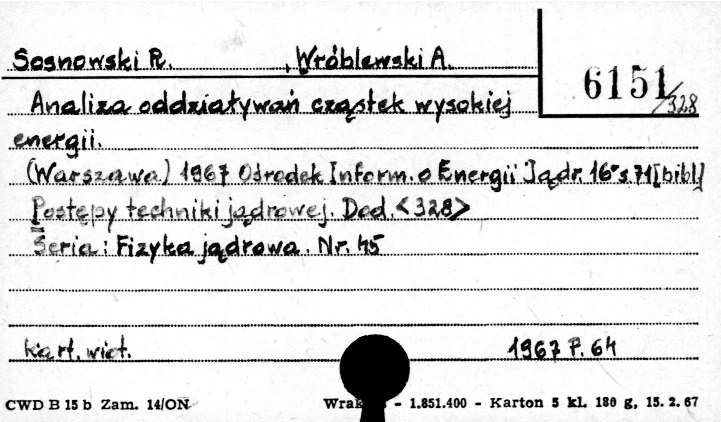 Sosnowski R. , Wróblewski A.
6151/328
Analiza oddziaływań cząstek wysokiej
energii.
(Warszawa) 1967 Ośrodek Inform. o Energii Jądr. 16° s. 71 [bibl.]
Postępy techniki jądrowej. Dod. <328>
Seria: Fizyka jądrowa. Nr. 45
kart. wiet. 1967 P. 64
CWD B 15 b Zam. 14/ON - 1.851.400 - Karton 5 kl. 180 g, 15. 2. 67